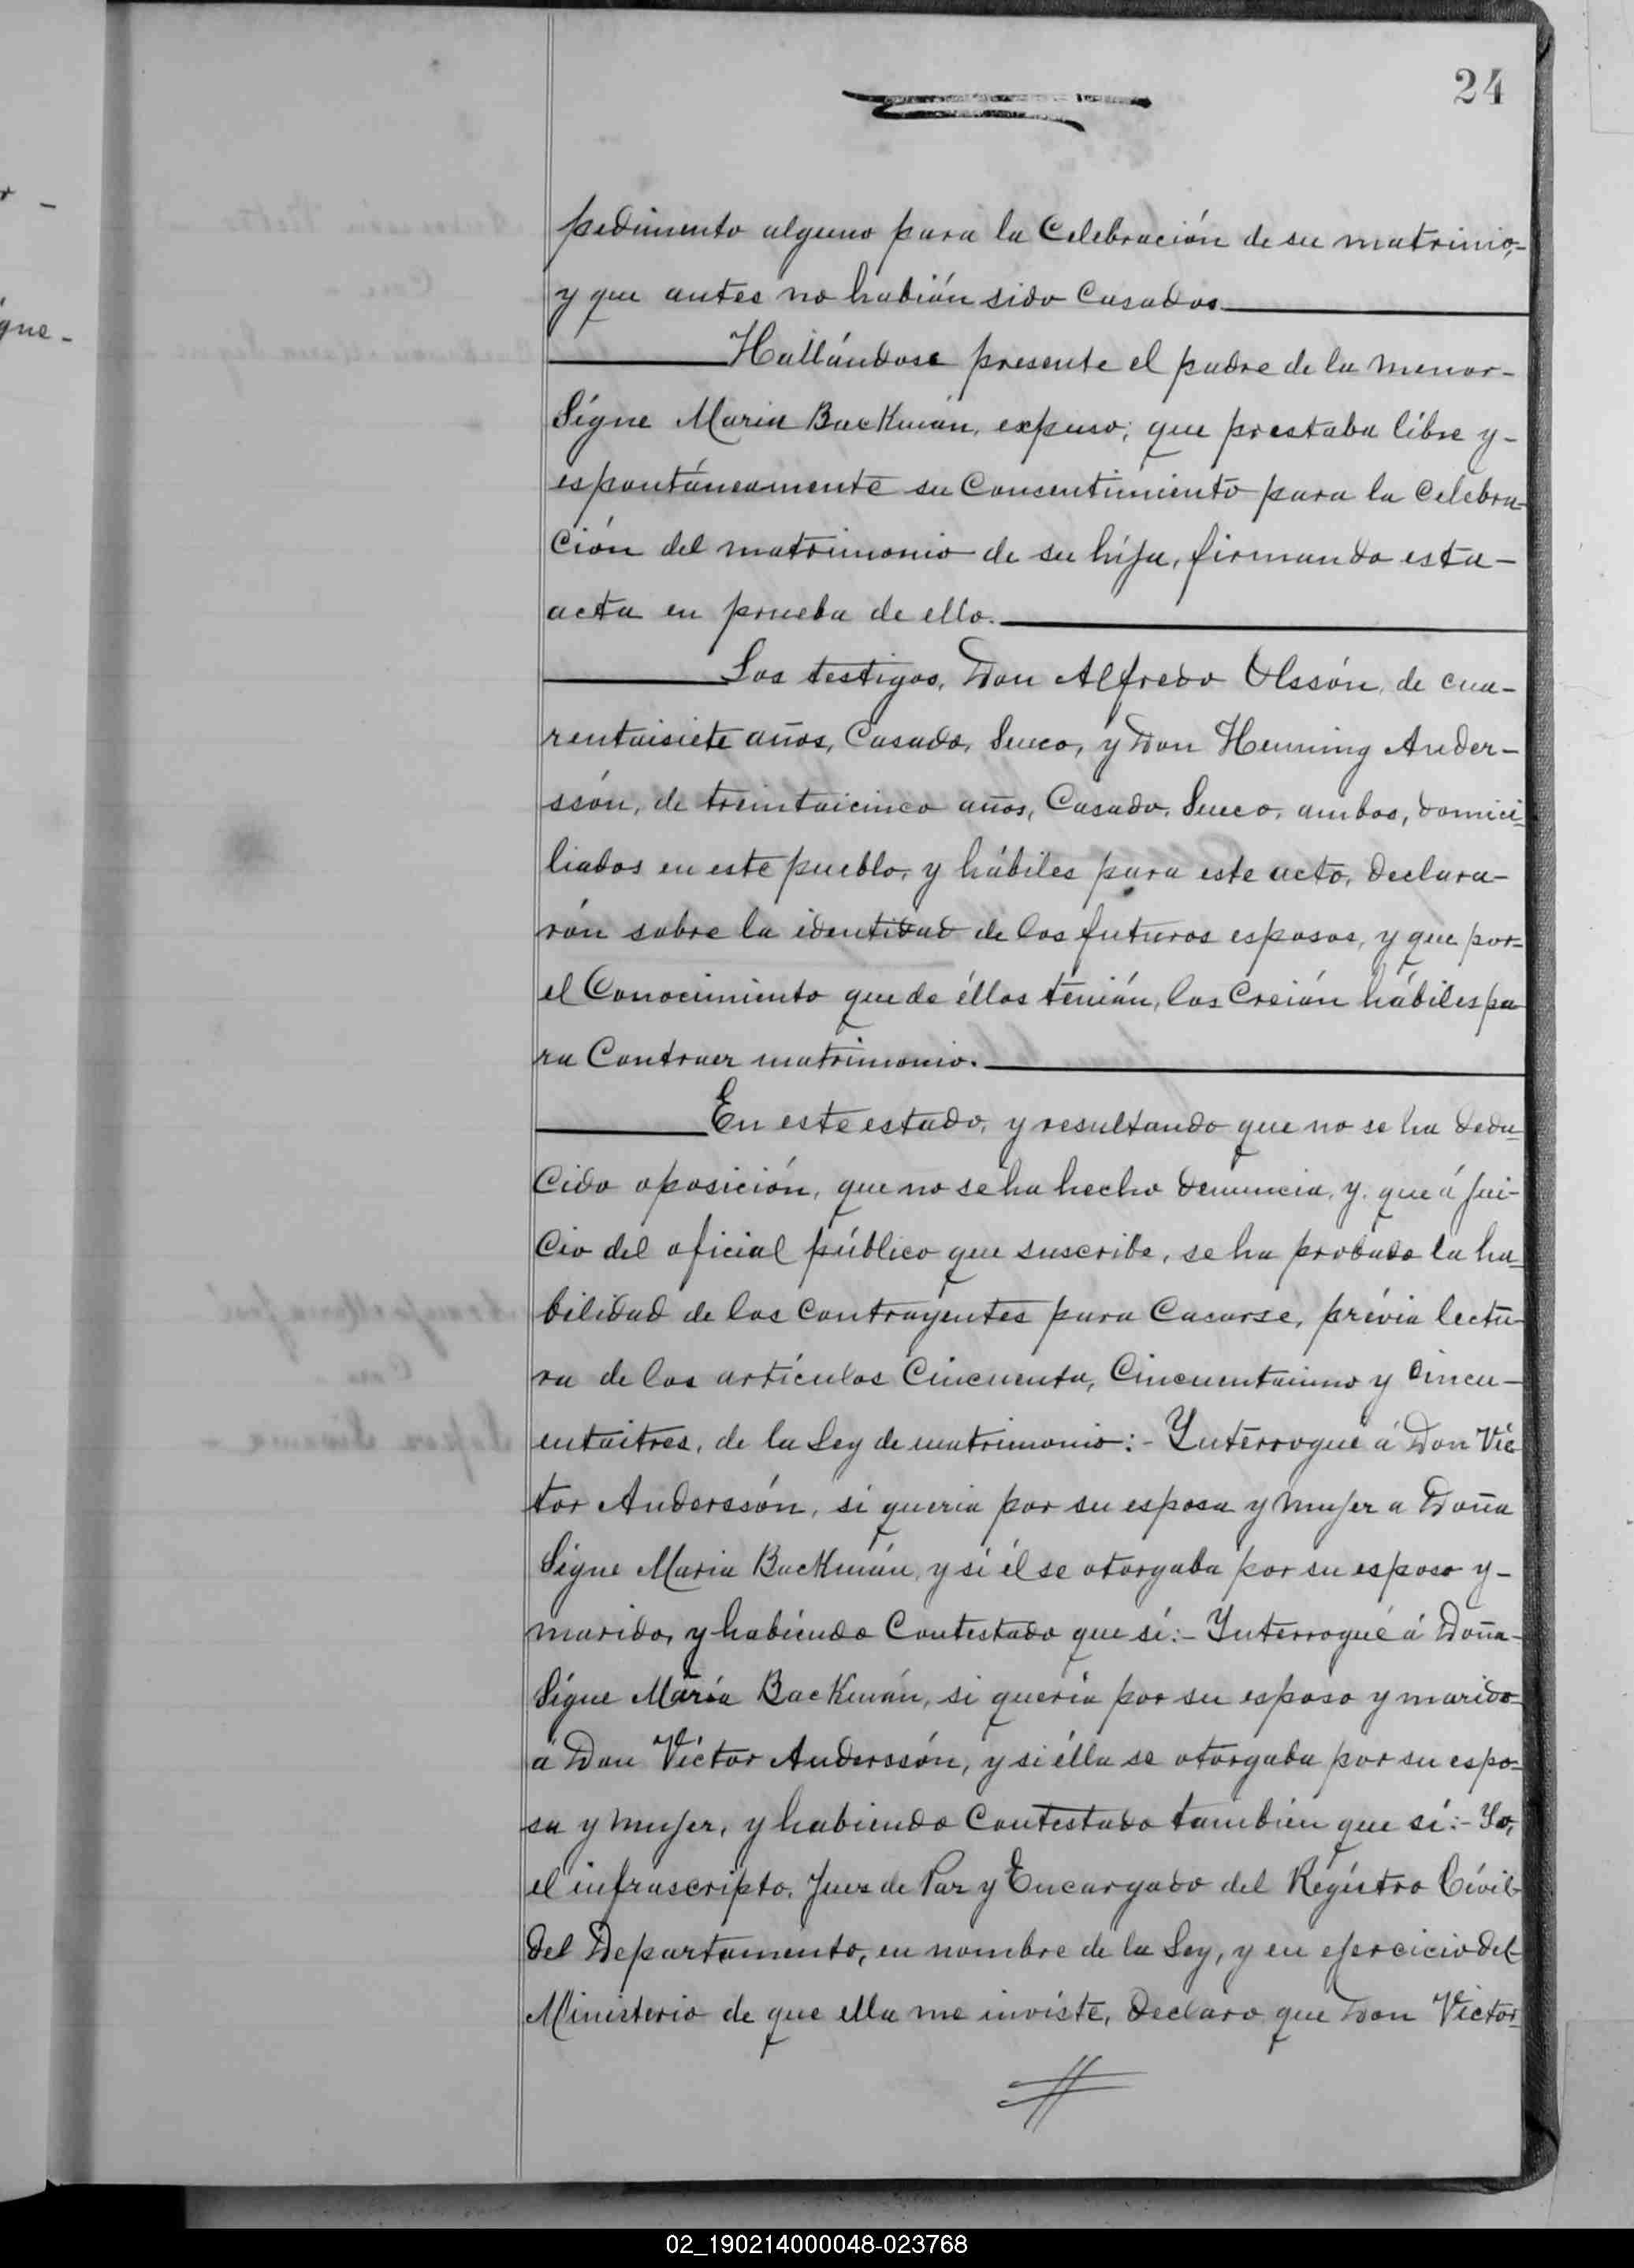 24
pedimento alguno para la Celebración de su matrinio,-
y que antes no habián sido Casados
Hallándose presente el padre de la menor-
Sígne Maria Backmán, expuso; que prestaba libre y-
espontáneamente su Consentimiento para la Celebra-
ción del matrimonio de su hija, firmando esta-
acta en prueba de ello.
Los testigos, Don Alfredo Olssón, de cua-
rentaisiete años, Casado, Sueco, y Don Henning Ander-
ssón, de treintaicinco años, Casado, Sueco, ambos, domici-
liados en este pueblo, y hábiles para este acto, declara-
rón sobre la identidad de los futuros esposos, y que por-
el Conocimiento que de éllos tenián, los Creián hábiles pa
ra Contraer matrimonio.
En este estado, y resultando que no se ha dedu-
cido oposición, que no se ha hecho denuncia, y que á jui-
cio del oficial público que suscribe, se ha probado la ha-
bilidad de los Contrayentes para Casarse, prévia lectu-
ra de los artículos Cincuenta, Cincuentaiuno y Cincu-
entaitres, de la Ley de matrimonio:- Ynterrogué á Don Víc
tor Anderssón, si queria por su esposa y mujer a Doña
Sígne Maria Backmán, y si él se otorgaba por su esposo y-
marido, y habiendo Contestado que sí:- Ynterrogué á Doña-
Sígne María Backmán, si quería por su esposo y marido-
á Don Víctor Anderssón, y si élla se otorgaba por su espo-
sa y mujer, y habiendo Contestado tambien que sí:- Yo,
el infrascripto, Juez de Paz y Encargado del Regístro Cívil-
del Departamento, en nombre de la Ley, y en ejercicio del-
Ministerio de que ella me inviste, declaro que Don Víctor-
gne-
02_190214000048-023768